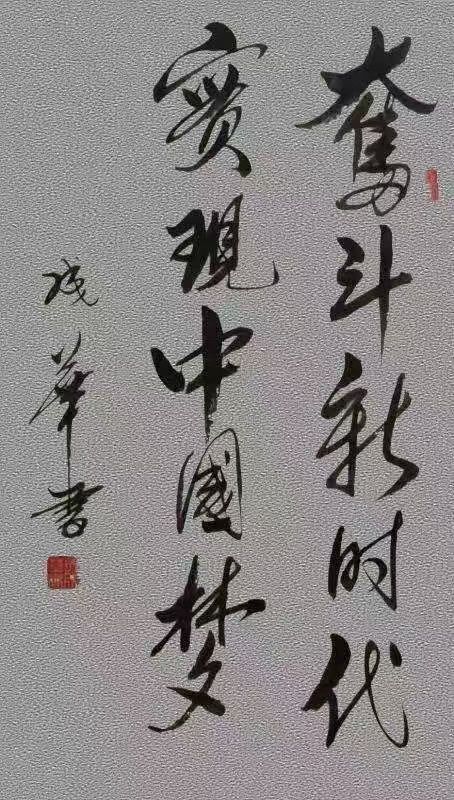 奮斗新时代
實現中國梦
華書